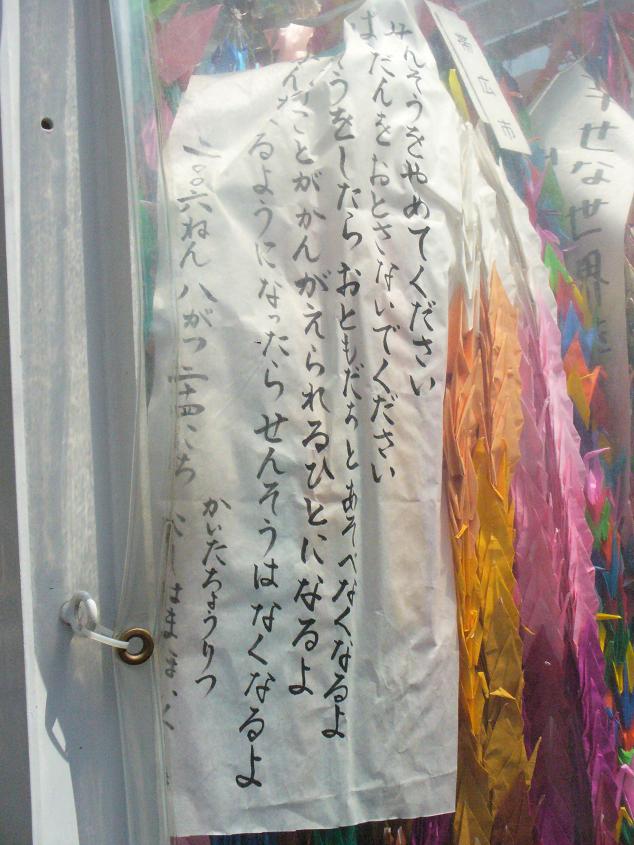 せんそうをやめてください
ばくだんをおとさないでください
そうをしたらおともだちとあそべなくなるよ
なことがかんがえられるひとになるよ
るようになったらせんそうはなくなるよ
二〇〇六ねん八がつ二十四にち
かいたちょうりつ
市
幸せな世界を